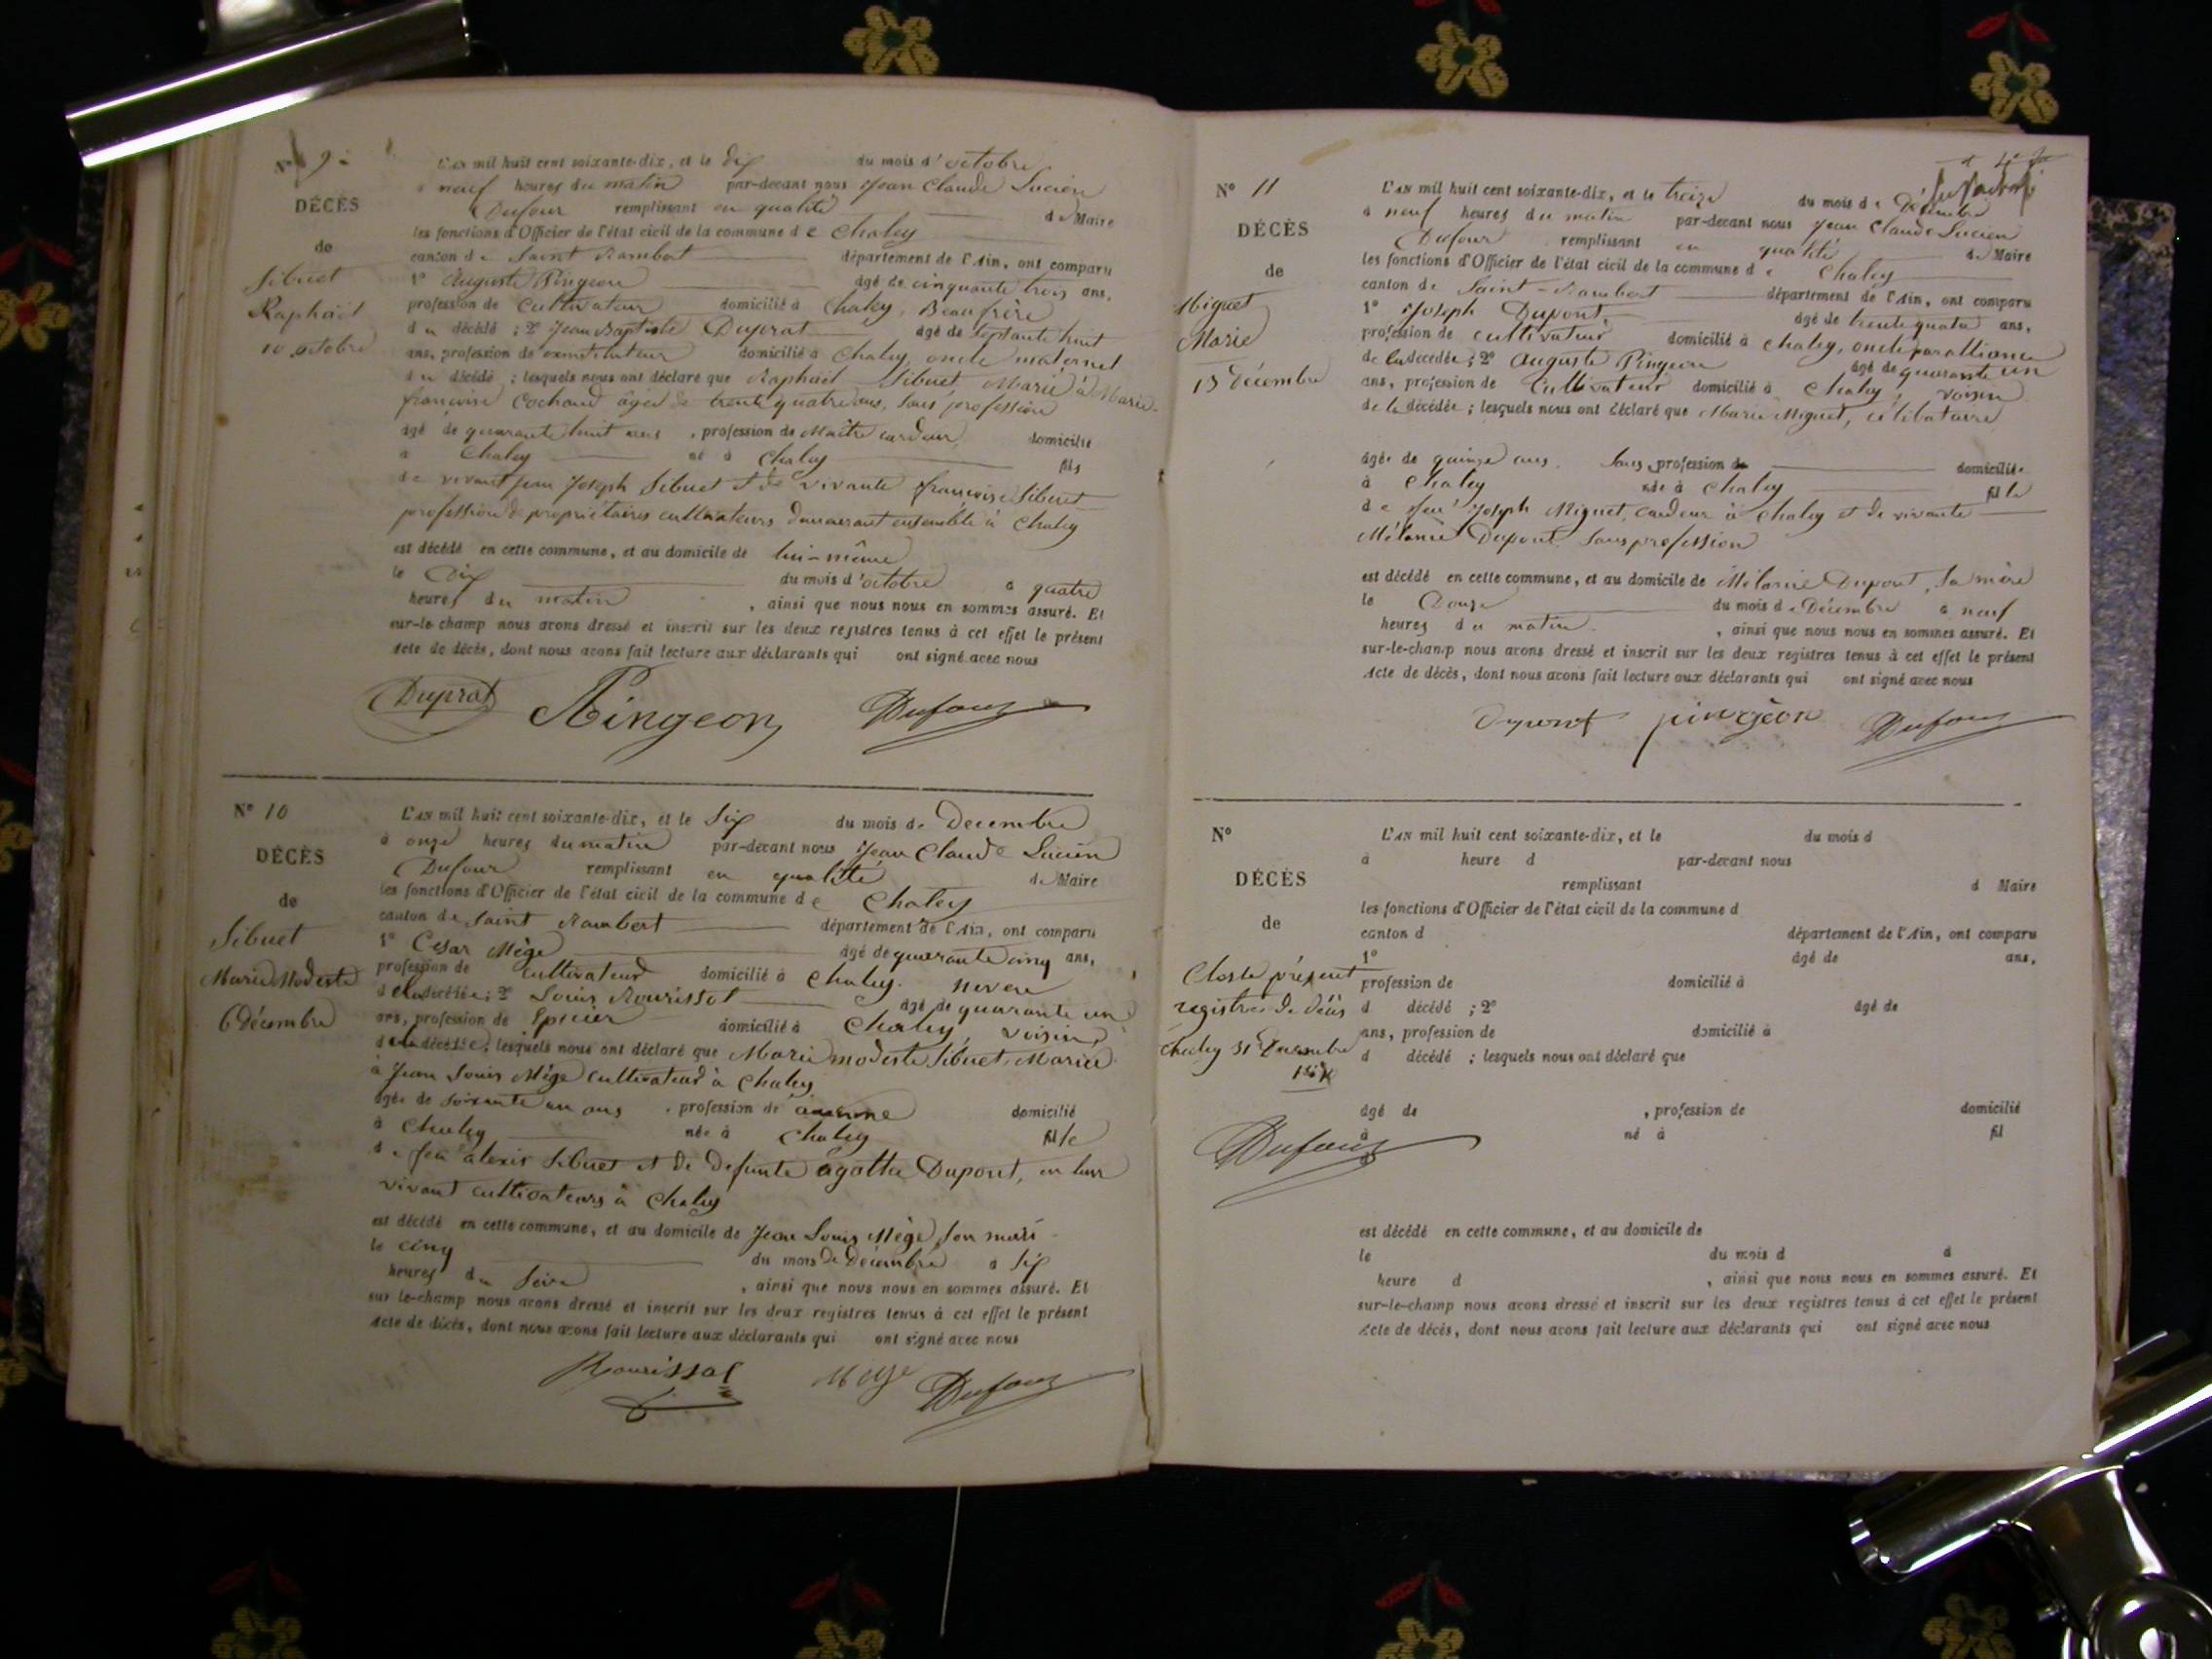 N° 9
DÉCÈS
de
Sibuet
Raphaël
10 octobre
L'AN mil huit cent soixante-dix, et le dix du mois d'octobre
à neuf heures du matin par-devant nous Jean Claude Lucien
Dufour remplissant en qualité de Maire
les fonctions d'Officier de l'état civil de la commune de Chaley
canton de Saint Rambert département de l'Ain, ont comparu
1° Auguste Pingeon âgé de cinquante trois ans,
profession de Cultivateur domicilié à Chaley, Beaufrère
du décédé ; 2° Jean Baptiste Duprat âgé de septante huit
ans, profession de exinstituteur domicilié à Chaley, oncle maternel
du décédé ; lesquels nous ont déclaré que Raphaël Sibuet Marié à Marie
françoise Cochaud âgée de trente quatre ans, sans profession
âgé de quarante huit ans , profession de Maître cardeur domicilié
à Chaley né à Chaley fils
de vivant Joseph Sibuet et de vivante françoise Sibuet
profession de propriétaires cultivateurs demeurant ensemble à Chaley
est décédé en cette commune, et au domicile de lui-même
le Dix du mois d'octobre à quatre
heures du matin , ainsi que nous nous en sommes assuré. Et
sur-le-champ nous avons dressé et inscrit sur les deux registres tenus à cet effet le présent
Acte de décès, dont nous avons fait lecture aux déclarants qui ont signé avec nous
Duprat Pingeon Dufour
N° 10
DÉCÈS
de
Sibuet
Marie Modeste
6 décembre
L'AN mil huit cent soixante-dix, et le Six du mois de Décembre
à onze heures du matin par-devant nous Jean Claude Lucien
Dufour remplissant en qualité de Maire
les fonctions d'Officier de l'état civil de la commune de Chaley
canton de Saint Rambert département de l'Ain, ont comparu
1° Cesar Mège âgé de quarante cinq ans,
profession de cultivateur domicilié à Chaley. neveu
de la décédée ; 2° Louis Rourissol âgé de quarante un
ans, profession de Epicier domicilié à Chaley, voisin
de la décédée ; lesquels nous ont déclaré que Marie modeste Sibuet, Mariée
à Jean Louis Mège cultivateur à Chaley
âgée de soixante un ans , profession de domicilié
à Chaley née à Chaley fille
de feu alexis Sibuet et de defunte agathe Dupont, en leur
vivant cultivateurs à Chaley
est décédé en cette commune, et au domicile de Jean Louis Mège son mari
le cinq du mois de Décembre à Six
heures du Soir , ainsi que nous nous en sommes assuré. Et
sur le-champ nous avons dressé et inscrit sur les deux registres tenus à cet effet le présent
Acte de décès, dont nous avons fait lecture aux déclarants qui ont signé avec nous
Rourissol Mège Dufour
N° 11
DÉCÈS
de
Miguet
Marie
13 Décembre
L'AN mil huit cent soixante-dix, et le treize du mois de Décembre
à neuf heures du matin par-devant nous Jean Claude Lucien
Dufour remplissant en qualité de Maire
les fonctions d'Officier de l'état civil de la commune de Chaley
canton de Saint-Rambert département de l'Ain, ont comparu
1° Joseph Dupont âgé de trente quatre ans,
profession de cultivateur domicilié à Chaley, oncle par alliance
de la décédée ; 2° Auguste Pingeon âgé de quarante un
ans, profession de Cultivateur domicilié à Chaley, voisin
de la décédée ; lesquels nous ont déclaré que Marie Miguet, célibataire
âgée de quinze ans. Sans profession de domiciliée
à Chaley née à Chaley fille
de feu Joseph Miguet, cardeur à Chaley et de vivante
Mélanie Dupont. Sans profession
est décédé en cette commune, et au domicile de Mélanie Dupont, sa mère
le Douze du mois de Décembre à neuf
heures du matin. , ainsi que nous nous en sommes assuré. Et
sur-le-champ nous avons dressé et inscrit sur les deux registres tenus à cet effet le présent
Acte de décès, dont nous avons fait lecture aux déclarants qui ont signé avec nous
Dupont pingeon Dufour
N°
DÉCÈS
de
Clos le présent
registre de décès
Chaley 31 Décembre
Dufour
L'AN mil huit cent soixante-dix, et le du mois d
à heure d par-devant nous
remplissant d Maire
les fonctions d'Officier de l'état civil de la commune d
canton d département de l'Ain, ont comparu
1° âgé de ans,
profession de domicilié à
d décédé ; 2° âgé de
ans, profession de domicilié à
d décédé ; lesquels nous ont déclaré que
âgé de , profession de domicilié
à né à fil
d
est décédé en cette commune, et au domicile de
le du mois d à
heure d , ainsi que nous nous en sommes assuré. Et
sur-le-champ nous avons dressé et inscrit sur les deux registres tenus à cet effet le présent
Acte de décès, dont nous avons fait lecture aux déclarants qui ont signé avec nous